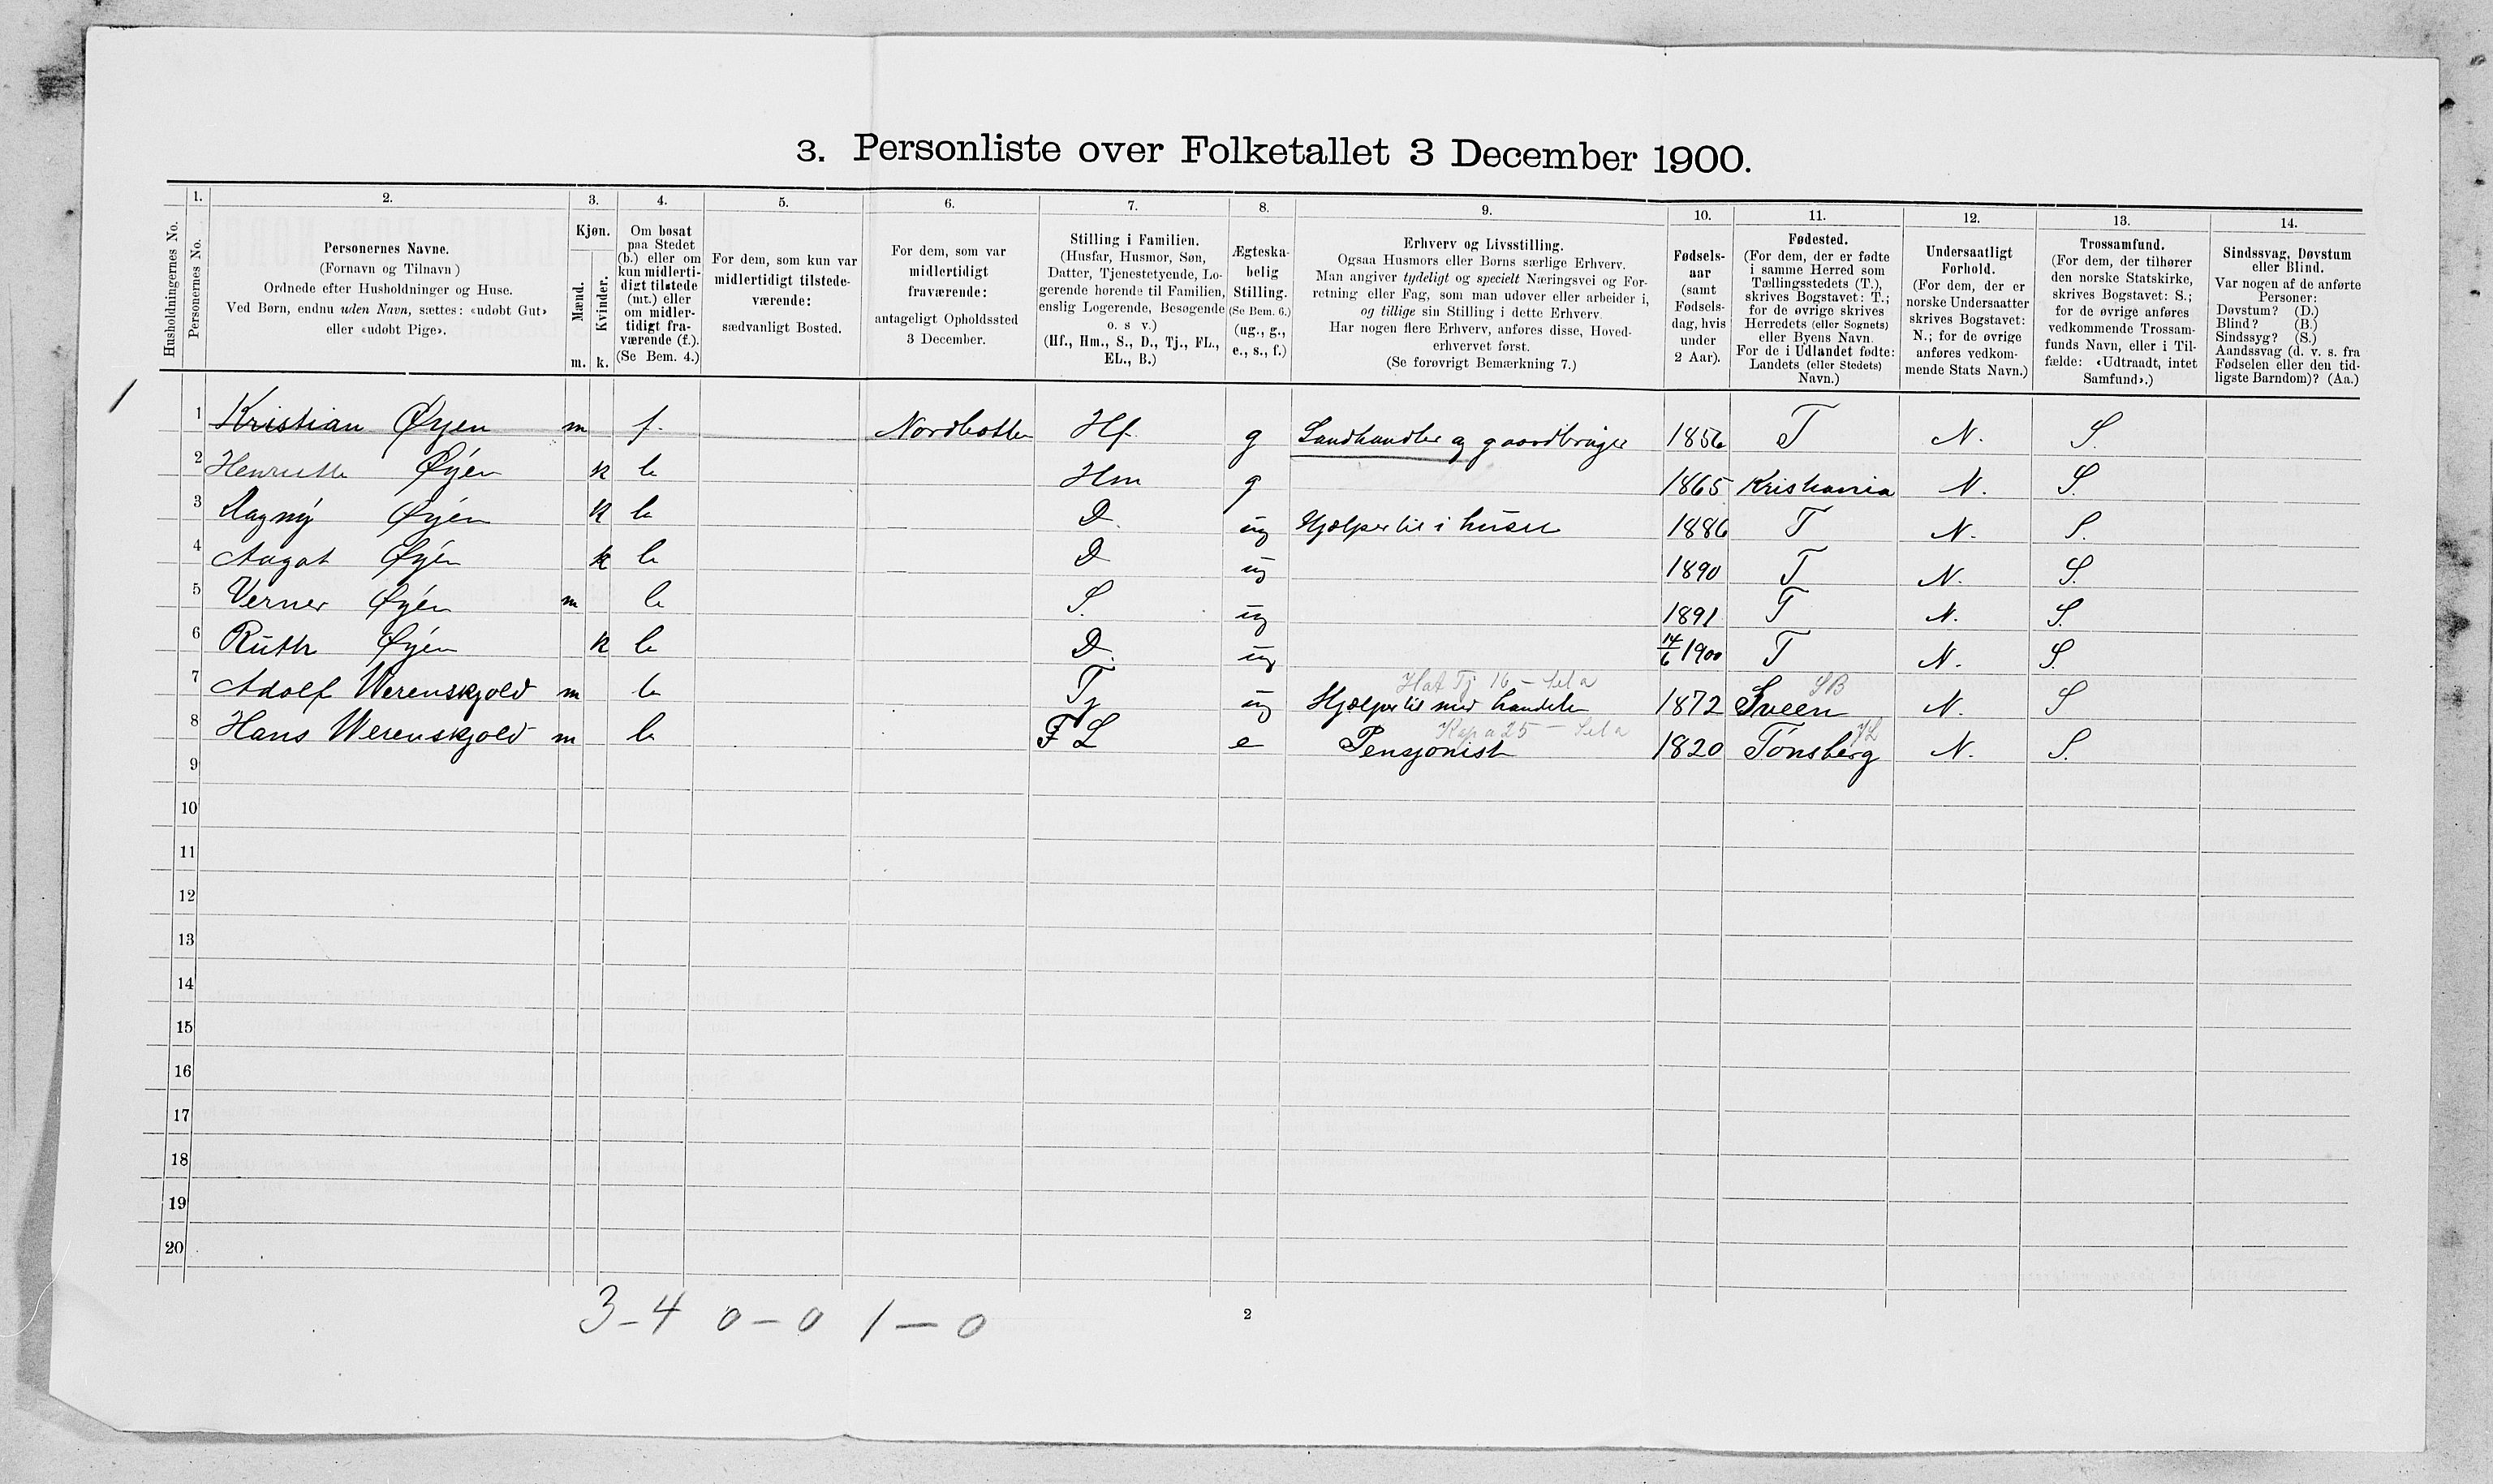 3. Personliste over Folketallet 3 December 1900.
Husholdningernes No.
1.
Personernes No.
2.
Personernes Navne.
(Fornavn og Tilnavn)
Ordnede efter Husholdninger og Huse.
Ved Børn, endnu uden Navn, sættes: «udøbt Gut»
eller «udøbt Pige».
3.
Kjøn.
Mænd.
Kvinder.
m. k.
4.
Om bosat
paa Stedet
(b.) eller om
kun midlerti-
digt tilstede
(mt.) eller
om midler-
tidigt fra-
værende (f.).
(Se Bem. 4.)
5.
For dem, som kun var
midlertidigt tilstede-
værende:
sædvanligt Bosted.
6.
For dem, som var
midlertidigt
fraværende:
antageligt Opholdssted
3 December.
7.
Stilling i Familien.
(Husfar, Husmor, Søn,
Datter, Tjenestetyende, Lo-
gerende hørende til Familien,
enslig Logerende, Besøgende
o. s v.)
(Hf., Hm., S., D., Tj., FL.,
EL., B.)
8.
Ægteska-
belig
Stilling.
(Se Bem. 6.)
(ug., g.,
e., s., f.)
9.
Erhverv og Livsstilling.
Ogsaa Husmors eller Børns særlige Erhverv.
Man angiver tydeligt og specielt Næringsvei og For-
retning eller Fag, som man udøver eller arbeider i,
og tillige sin Stilling i dette Erhverv.
Har nogen flere Erhverv, anføres disse, Hoved-
erhvervet først.
(Se forøvrigt Bemærkning 7.)
10.
Fødsels-
aar
(samt
Fødsels-
dag, hvis
under
2 Aar).
11.
Fødested.
(For dem, der er fødte
i samme Herred som
Tællingsstedets (T.),
skrives Bogstavet: T.;
for de øvrige skrives
Herredets (eller Sognets)
eller Byens Navn.
For de i Udlandet fødte:
Landets (eller Stedets)
Navn.)
12.
Undersaatligt
Forhold.
(For dem, der er
norske Undersaatter
skrives Bogstavet:
N.; for de øvrige
anføres vedkom-
mende Stats Navn.)
13.
Trossamfund.
(For dem, der tilhører
den norske Statskirke,
skrives Bogstavet: S.;
for de øvrige anføres
vedkommende Trossam-
funds Navn, eller i Til-
fælde: «Udtraadt, intet
Samfund».)
14.
Sindssvag, Døvstum
eller Blind.
Var nogen af de anførte
Personer:
Døvstum? (D.)
Blind? (B.)
Sindssyg? (S.)
Aandssvag (d. v. s. fra
Fødselen eller den tid-
ligste Barndom)? (Aa.)
1 1 Kristian Øyen m f. Hf. g Landhandler og gaardbruger 1856 T N. S.
2 Øyen k b Hm g 1865 Kristiania N. S.
3 Dagny Øyen k b D. ug Hjælper til i huset 1886 T N. S.
4 Øyen k b D ug 1890 T N. S.
5 Verner Øyen m b S. ug 1891 T N. S.
6 Ruth Øyen k b D. ug 14/6 1900 T N. S.
7 Adolf Werenskjold m b Tj ug Hjælper til med handelen 1872 Sveen N. S
8 Hans Werenskjold m b FL e Pensjonist 1820 Tønsberg N. S.
9
10
11
12
13
14
15
16
17
18
19
20
3-4 0-0 1-0
2